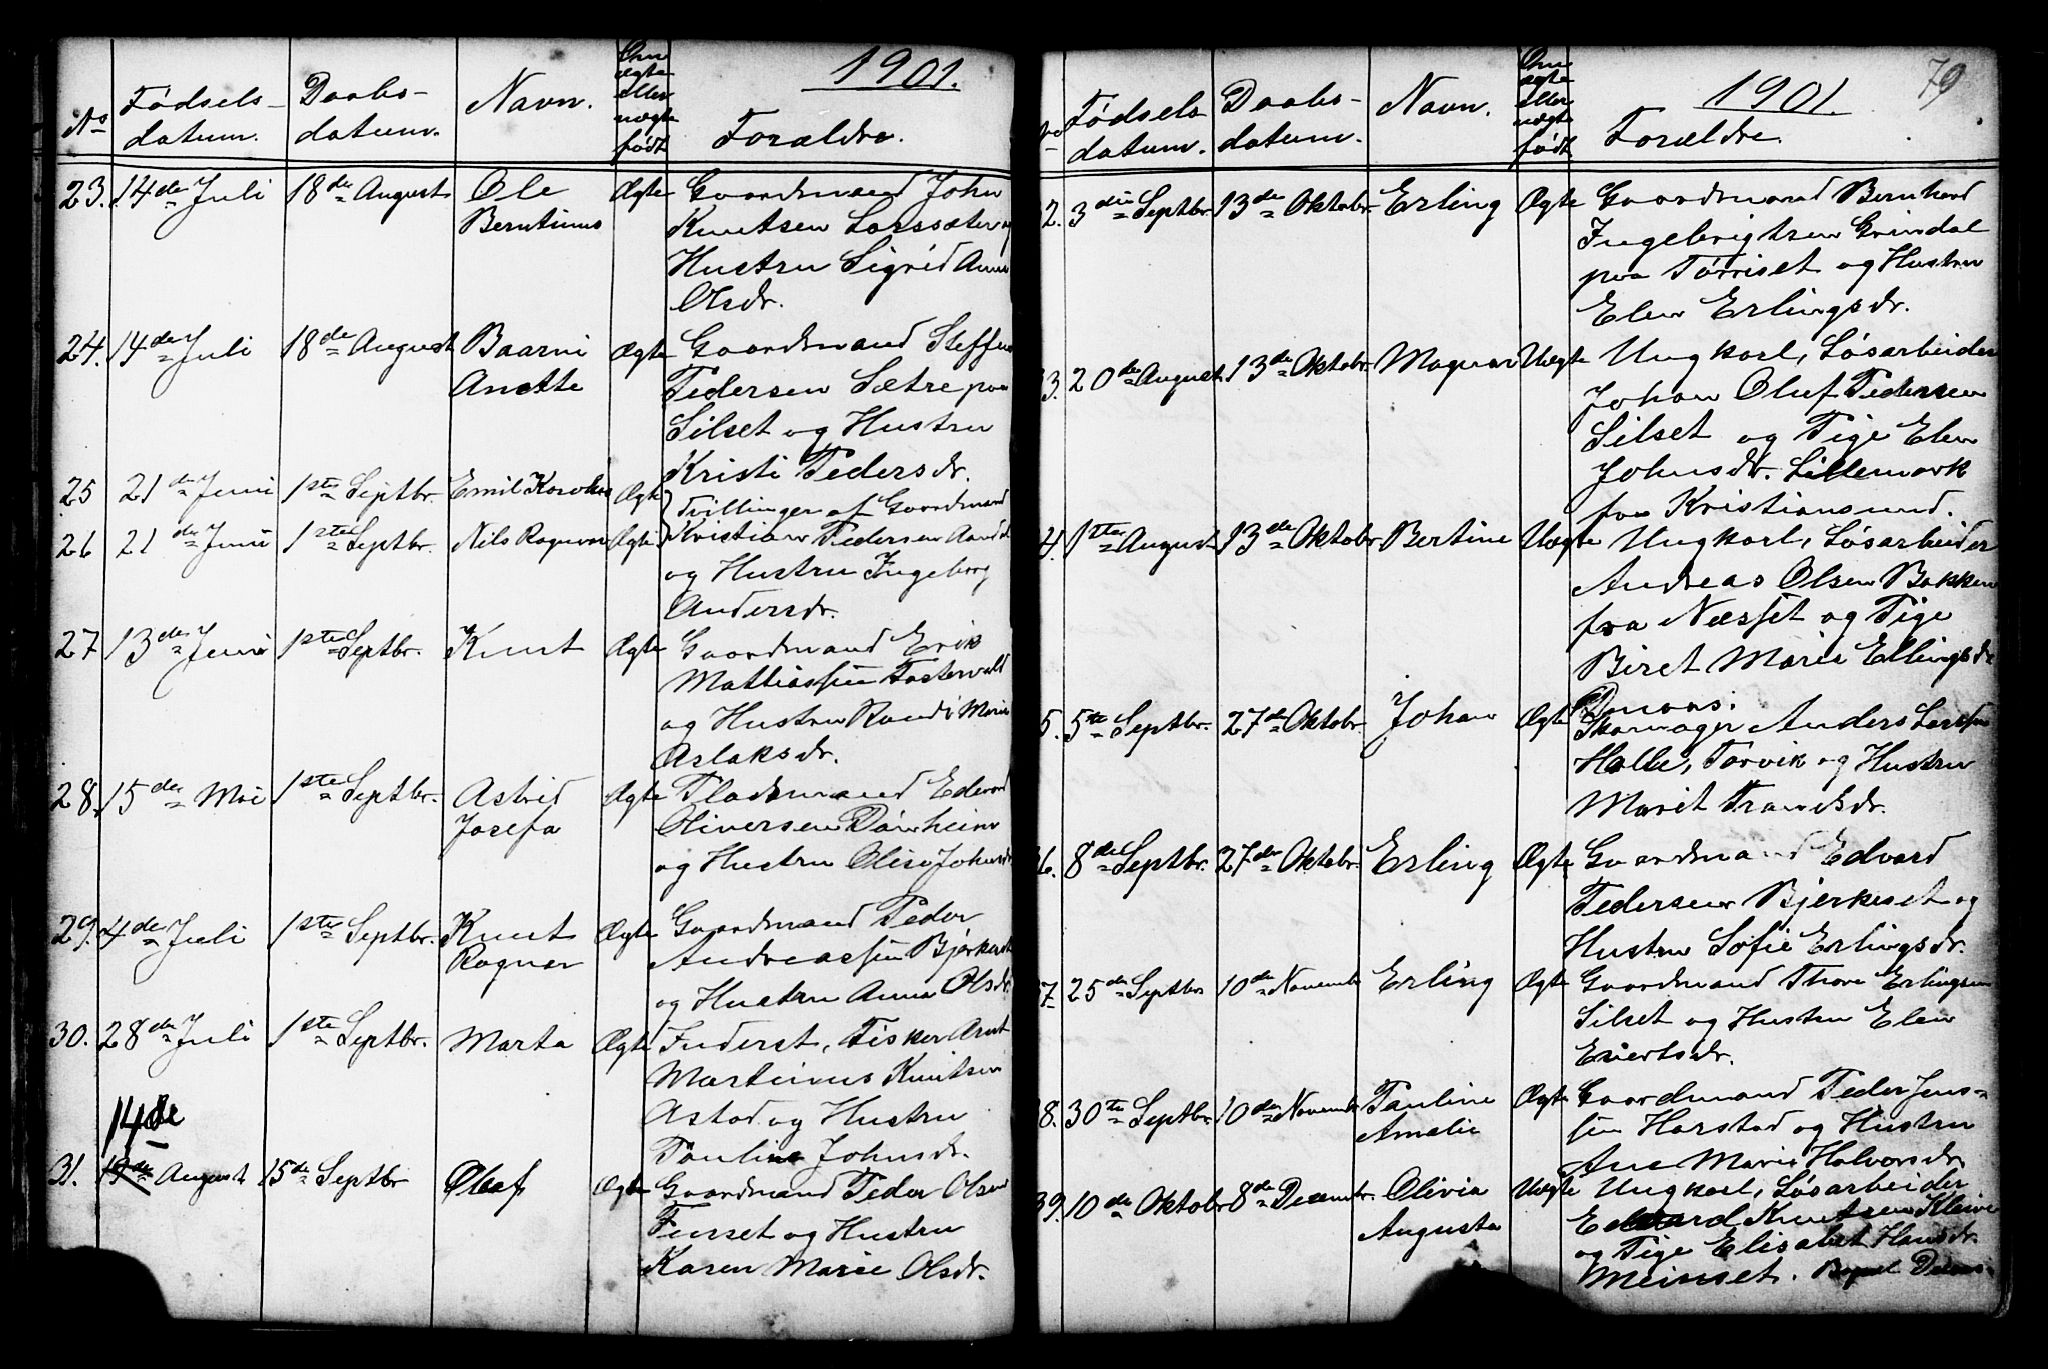 1901.
No
Fødsels-
datum.
Daabs-
datum.
Navn.
Om
ægte
eller
uægte
født
Forældre.
23. 14de Juli 18de August Ole Ægte Gaardmand John
Berntinus Knutsen Larssæter og
Hustru Sigrid Anne
Olsdr.
24. 14de Juli 18de August Baarni Ægte Gaardmand Steffen
Anette Pedersen Sætre paa
Silset og Hustru
Kristi Pedersdr.
25 21de Juni 1ste Septbr. Emil Ægte Tvillinger af Gaardmand
26 21de Juni 1ste Septbr. Nils Ragnvar Ægte Kristian Pedersen
og Hustru Ingeborg
Andersdr.
27 13de Juni 1ste Septbr. Knut Ægte Gaardmand Erik
Mattiassen Fostervold
og Hustru Randi Marie
Aslaksdr.
28. 15de Mai 1ste Septbr. Astrid Ægte Pladsmand Edvard
Josefa Oliversen Dønheim
og Hustru Olise Johnsdr
29. 4de Juli 1ste Septbr. Knut Ægte Gaardmand Peder
Ragnar Andreassen Bjerkeset
og Hustru Anne Olsdr.
30. 28de Juli 1ste Septbr. Marta Ægte Inderst, Fisker Arnt
Martinus Knutsen
Astad og Hustru
Pauline Johnsdr.
14de
31. 19de August 15de Septbr Olaf Ægte Gaardmand Peder Olsen
Furset og Hustru
Karen Marie Olsdr.
79
1901.
Fødsels
datum.
Daabs-
datum.
Navn.
Om
ægte
eller
uægte
født
Forældre.
2. 3die Septbr. 13de Oktobr. Erling Ægte Gaardmand Bernhard
Ingebrigtsen Grindal
paa Tørriset og Hustru
Elen Erlingsdr.
3. 20de August 13de Oktobr. Magnar Uægte Ungkarl, Løsarbeider
Johan Oluf Pedersen
Silset og Pige Elen
Johnsdr. Lillemark
fra Kristiansund.
4. 1ste August 13de Oktobr Bertine Uægte Ungkarl, Løsarbeider
Andreas Olsen Bakken
fra Næsset og Pige
Beret Marie Ellingsdr
5. 5te Septbr. 27de Oktobr. Johan Ægte Skomager Anders Larssen
Halle, Torvik og Hustru
Marit Frandsdr.
6. 8de Septbr. 27de Oktobr. Erling Ægte Gaardmand Edvard
Pedersen Bjerkeset og
Hustru Sofie Erlingsdr.
7. 25de Septbr 10de Novembr Erling Ægte Gaardmand Thore Erlingsen
Silset og Hustru Elen
Eviertsdr.
8. 30te Septbr. 10de Novembr Pauline Ægte Gaardmand Peder Jens-
Amalie sen Harstad og Hustru
Ane Marie Halvorsdr.
39. 10de Oktobr 8de Decembr. Olivia Uægte Ungkarl, Løsarbeider
Augusta Edvard Knutsen Kleive
og Pige Elisabet Hansdr.
Meinset.